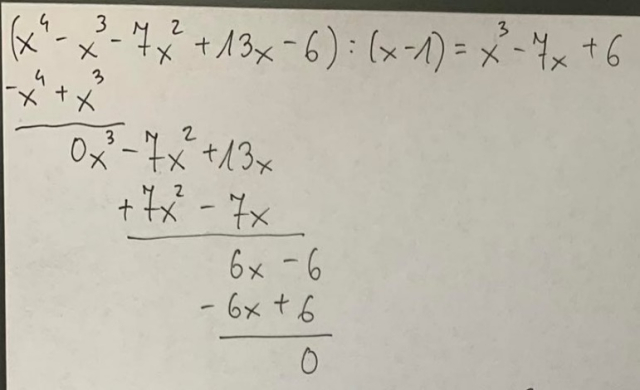 (x⁴ - x³ - 7x² + 13x - 6) : (x - 1) = x³ - 7x + 6
-x⁴ + x³
0x³ - 7x² + 13x
+ 7x² - 7x
6x - 6
- 6x + 6
0